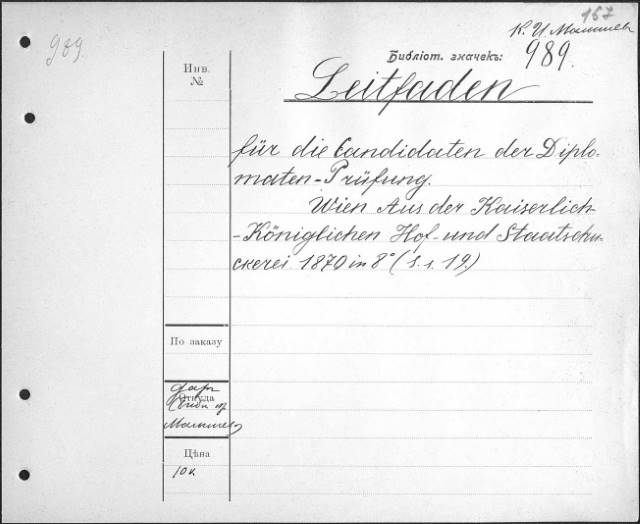 157
К. И. Малышев
989.
Библіот. значекъ: 989.
Инв.
№
Leitfaden
für die Candidaten der Diplo-
maten-Prüfung.
Wien Aus der Kaiserlich-
-Königlichen Hof- und Staatsdru-
ckerei 1870 in 8° (S. 1. 19.)
По заказу
Откуда
даръ
Малышева
Цѣна
10к